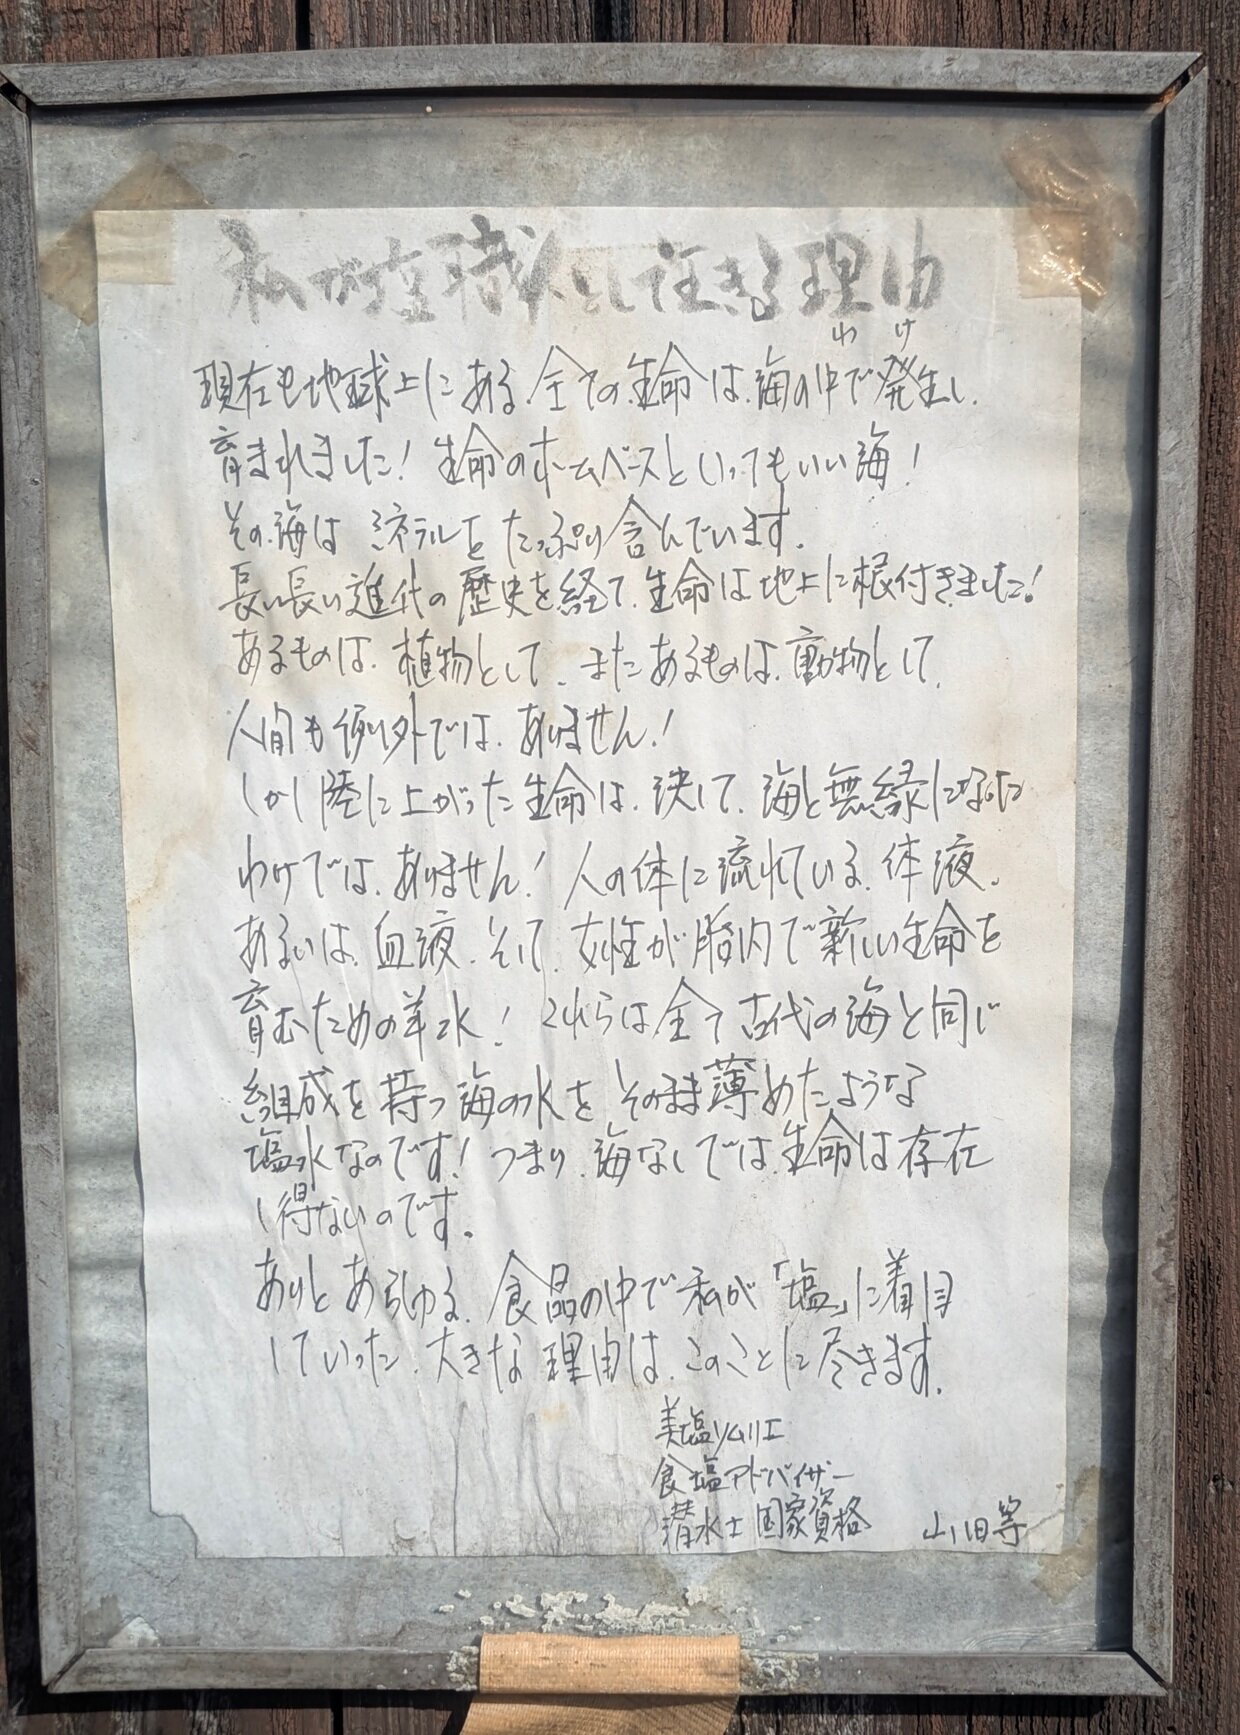 私が塩職人として生きる理由
わけ
現在も地球上にある、全ての生命は、海の中で発生し、
育まれました！生命のホームベースといってもいい海！
その海はミネラルをたっぷり含んでいます。
長い長い進化の歴史を経て、生命は地上に根付きました！
あるものは、植物として、またあるものは、動物として、
人間も例外では、ありません！
しかし陸に上がった生命は、決して、海と無縁になった
わけでは、ありません！人の体に流れている、体液、
あるいは、血液、そして、女性が胎内で新しい生命を
育むための羊水！これらは全て古代の海と同じ
組成を持つ海の水を、そのまま薄めたような
塩水なのです！つまり、海なしでは、生命は存在
し得ないのです。
ありとあらゆる、食品の中で私が「塩」に着目
していった、大きな理由は、このことに尽きます。
美塩ソムリエ
食塩アドバイザー
潜水士 国家資格 山田等